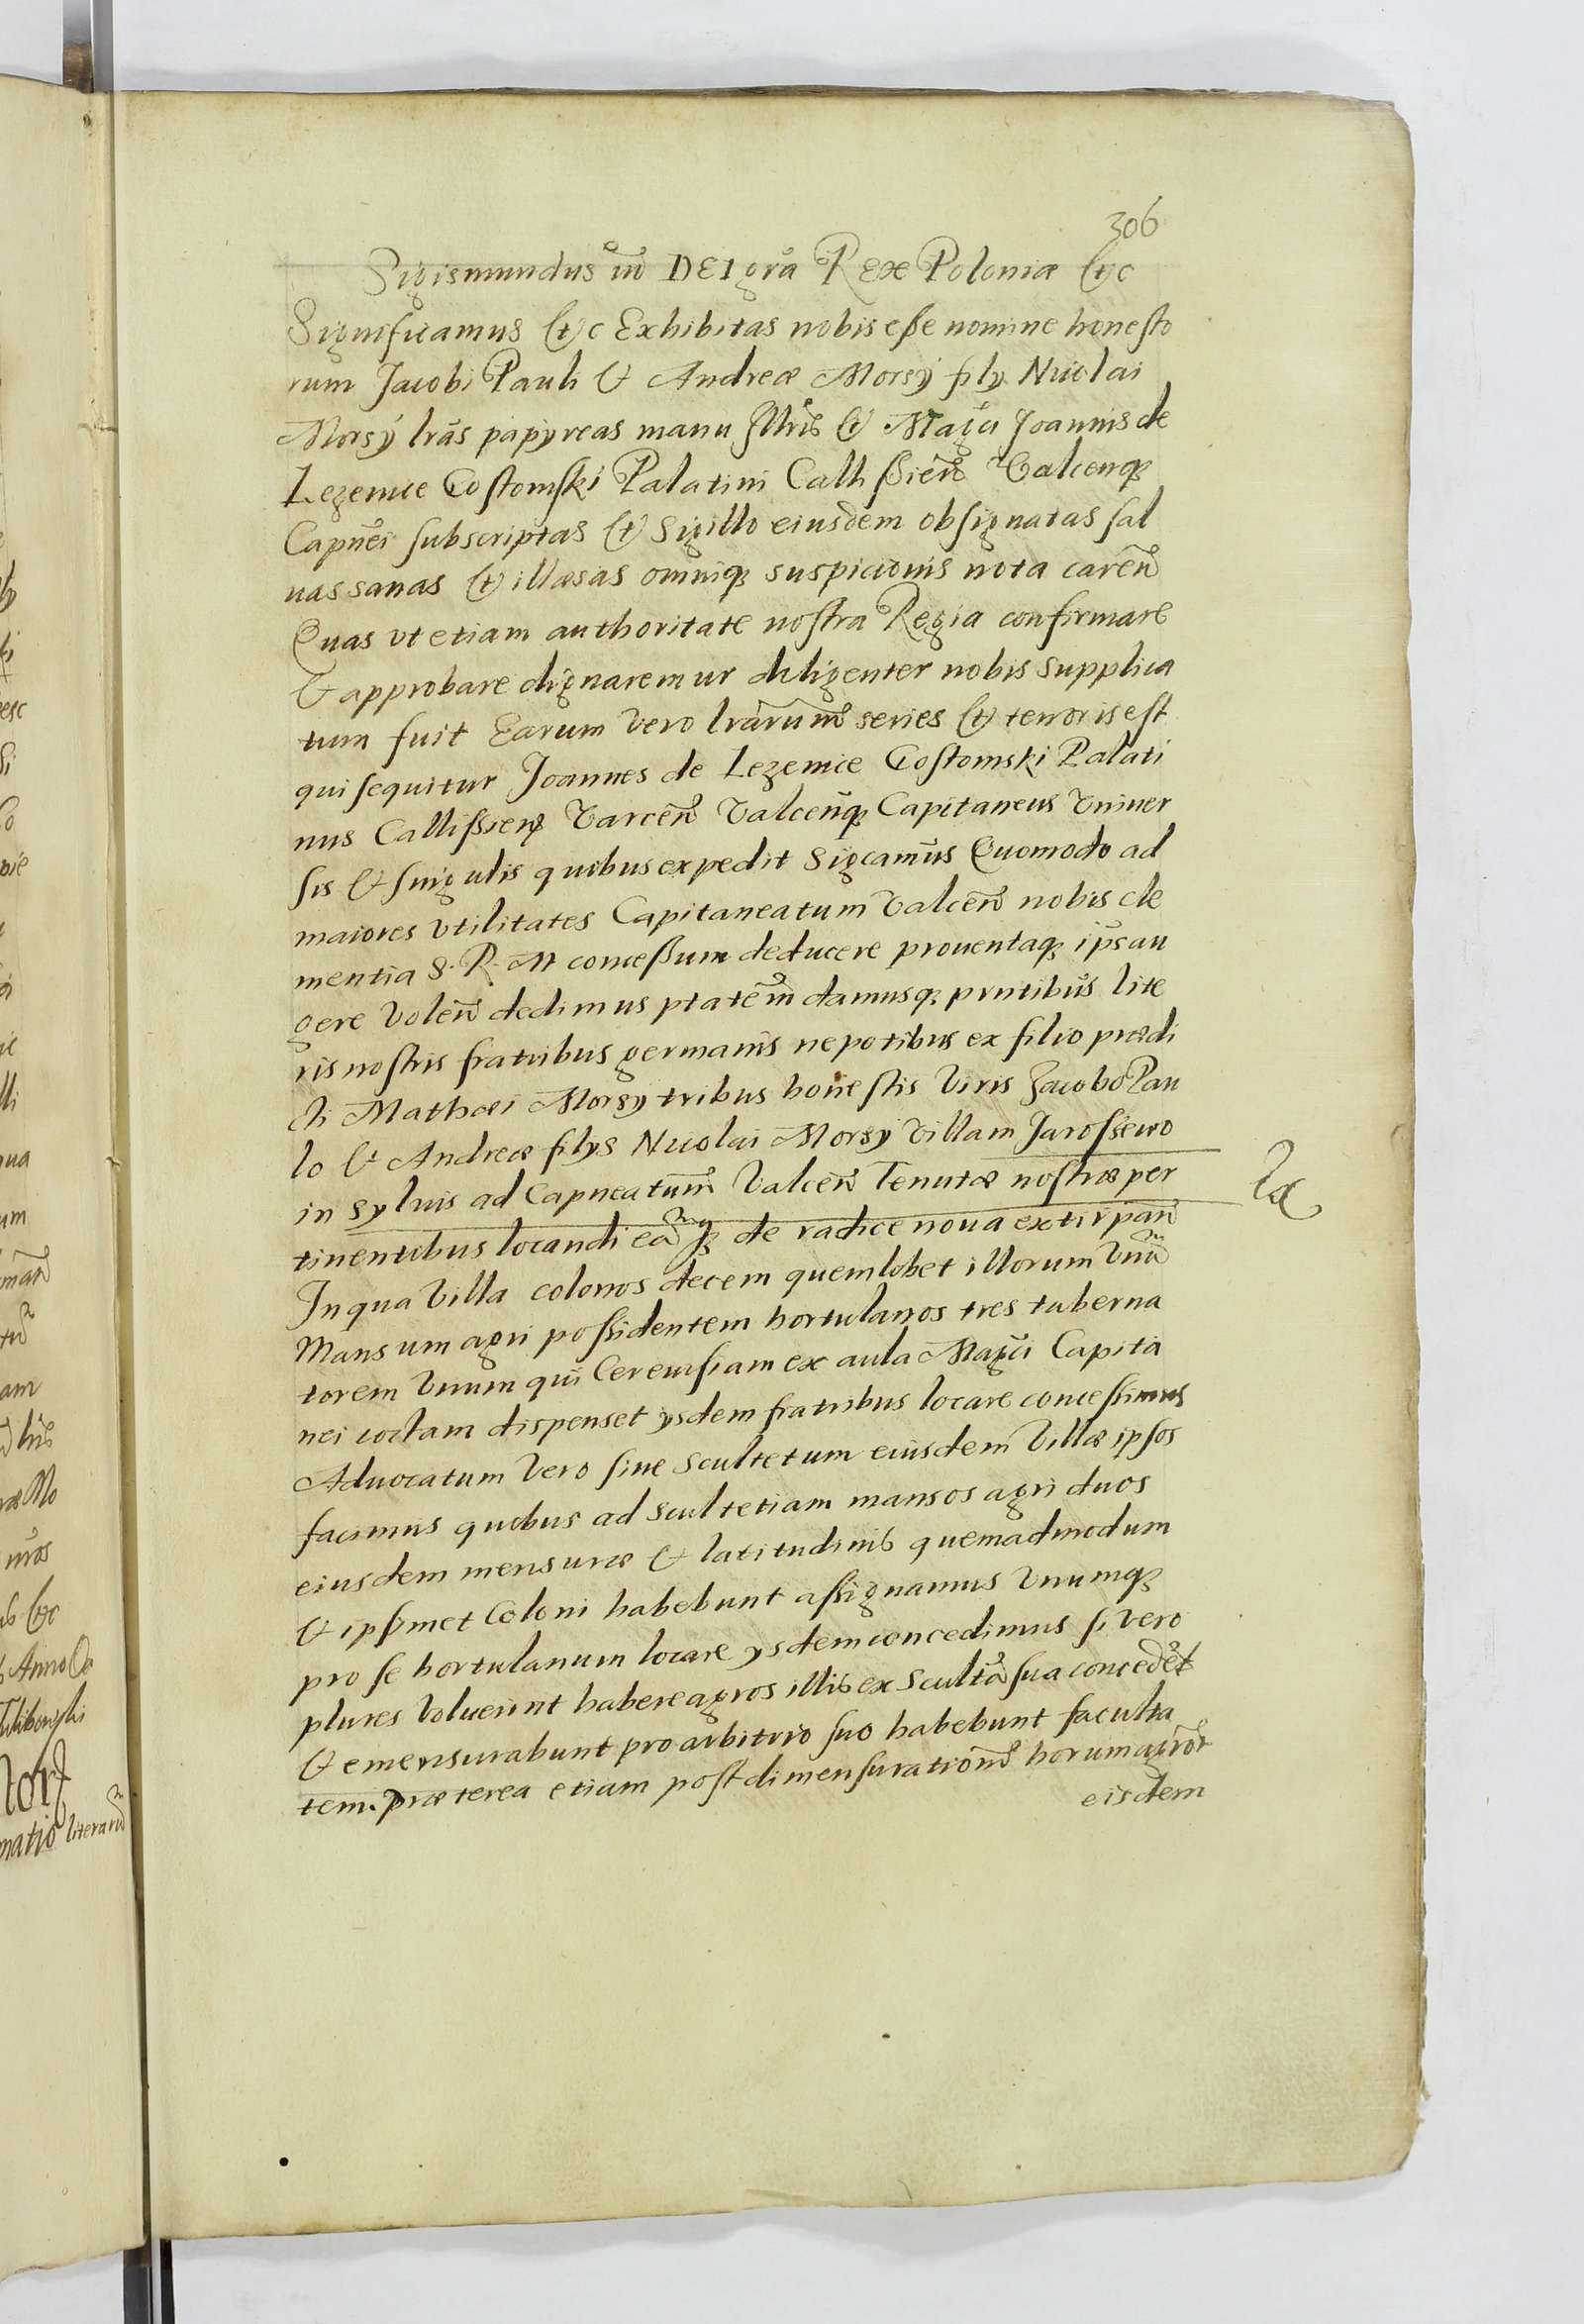 306
Sigismundus iii DEI gra͂ Rex Poloniæ &c
Significamus &c Exhibitas nobis eße nomine honesto
rum Jacobi Pauli & Andreæ Morsÿ fily Nicolai
Morsÿ lr͂as papyreas manu Jllris & Mag͂ci Joannis de
Lezenice Gostomski Palatini Callißien͂ Valcenq3
Capnei subscriptas & sigillo eiusdem obsignatas sal
uas sanas & illæsas omniq3 suspicionis nota caren͂
Quas vt etiam authoritate nostra Regia confirmare
& approbare dignaremur diligenter nobis supplica
tum fuit Earum vero lr͂arum͂ series & tenor is est
qui sequitur Joannes de Lezenice Gostomski Palati
nus Callißien͂ Varcen͂ Valcen͂q3 Capitaneus Vniuer
sis & singulis quibus expedit Sigcamus Quomodo ad
maiores vtilitates Capitaneatum Valcen͂ nobis cle
mentia S. R. M conceßum deducere prouentaq3 ips au
gere volen͂ dedimus ptatem͂ damusq3 pn͂tibus lite
ris nostris fratribus germanis nepotibus ex filio prædi
cti Mathæi Morsy tribus honestis viris Jacobo Pau
lo & Andreæ filys Nicolai Morsy villam Jarossewo
in syluis ad Capneatum͂ Valcen͂ Tenutæ nostræ per
Va
tinentibus locandi ea͂q3 de radice noua extirpan͂
In qua villa colonos decem quemlobet illorum vnu͂
Mansum agri possidentem hortulanos tres taberna
torem vnum qui Cereuisiam ex aula Mag͂ci Capita
nei coctam dispenset ysdem fratribus locare concessimus
Aduocatum vero siue scultetum eiusdem villæ ipsos
facimus quobus ad scultetiam mansos agri duos
eiusdem mensuræ & latitudinis quemadmodum
& ipsimet Coloni habebunt assignamus vnumq3
pro se hortulanum locare ysdem concedimus si vero
plures voluerint habere agros illis ex sculta͂ sua concedet
& emensurabunt pro arbitrio suo habebunt faculta
tem. præterea etiam post dimensuration͂e horum agror͂
eisdem